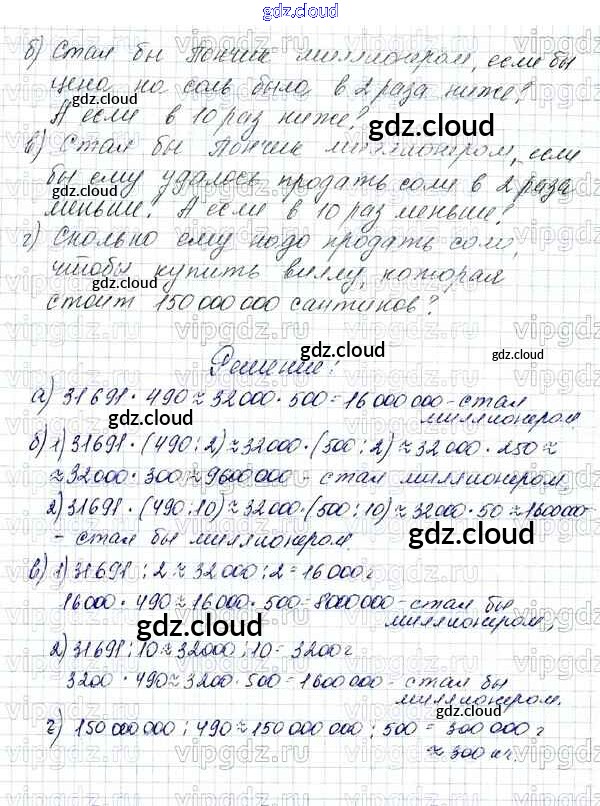 gdz.cloud
б) Стал бы Пончик миллионером, если бы
цена на соль была в 2 раза ниже?
gdz.cloud
А если в 10 раз ниже?
gdz.cloud
в) Стал бы Пончик миллионером, если
бы ему удалось продать соли в 2 раза
gdz.cloud
меньше? А если в 10 раз меньше?
г) Сколько ему надо продать соли,
чтобы купить виллу, которая
gdz.cloud
стоит 150 000 000 сантиков?
Решение:
gdz.cloud
а) 31691 · 490 ≈ 32000 · 500 = 16 000 000 - стал
миллионером
gdz.cloud
б) 1) 31691 · (490 : 2) ≈ 32000 · (500 : 2) ≈ 32 000 · 250 ≈
≈ 32000 · 300 ≈ 9600000 - стал миллионером,
gdz.cloud
2) 31691 · (490 : 10) ≈ 32000 · (500 : 10) ≈ 32000 · 50 ≈ 1600000 -
- стал бы миллионером.
gdz.cloud
в) 1) 31691 : 2 ≈ 32000 : 2 = 16 000 г
16000 · 490 ≈ 16000 · 500 = 8000000 - стал бы
миллионером,
gdz.cloud
gdz.cloud
2) 31691 : 10 ≈ 32000 : 10 = 3200 г
3200 · 490 ≈ 3200 · 500 = 1600000 - стал бы
миллионером.
gdz.cloud
г) 150 000 000 : 490 ≈ 150 000 000 : 500 = 300 000 г
≈ 300 кг.
gdz.cloud